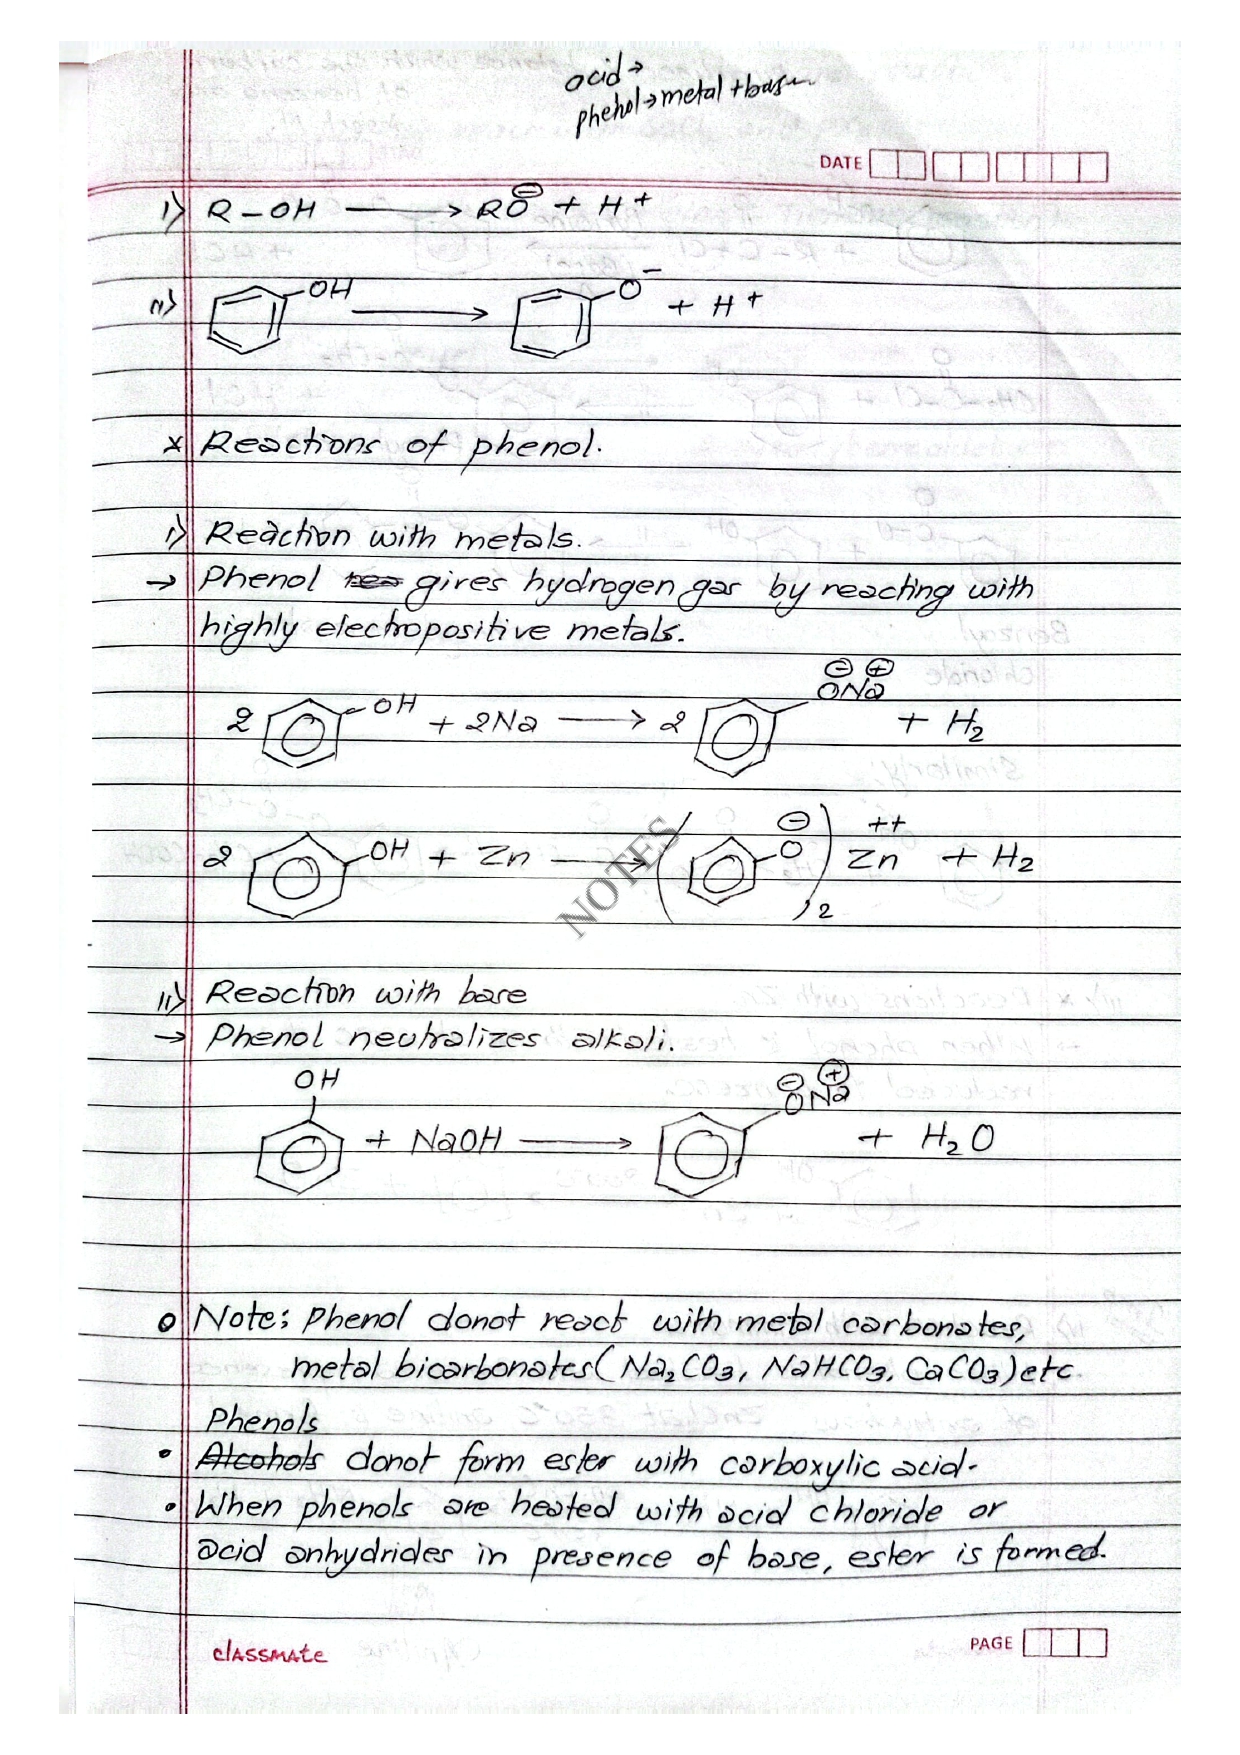 acid→
phenol→metal + base
DATE
i) R-OH ⟶ RO⊖ + H+
ii) OH ⟶ O- + H+
* Reactions of phenol.
i) Reaction with metals.
→ Phenol gires hydrogen gas by reacting with
highly electropositive metals.
2 OH + 2Na ⟶ 2 O⊖Na⊕ + H2
2 OH + Zn ⟶ ( O⊖ )2 Zn++ + H2
NOTES
ii) Reaction with base
→ Phenol neutralizes alkali.
OH + NaOH ⟶ O⊖Na⊕ + H2O
o Note: Phenol donot react with metal carbonates,
metal bicarbonates (Na2CO3, NaHCO3, CaCO3) etc.
Phenols
• Alcohols donot form ester with carboxylic acid.
• When phenols are heated with acid chloride or
acid anhydrides in presence of base, ester is formed.
classmate
PAGE